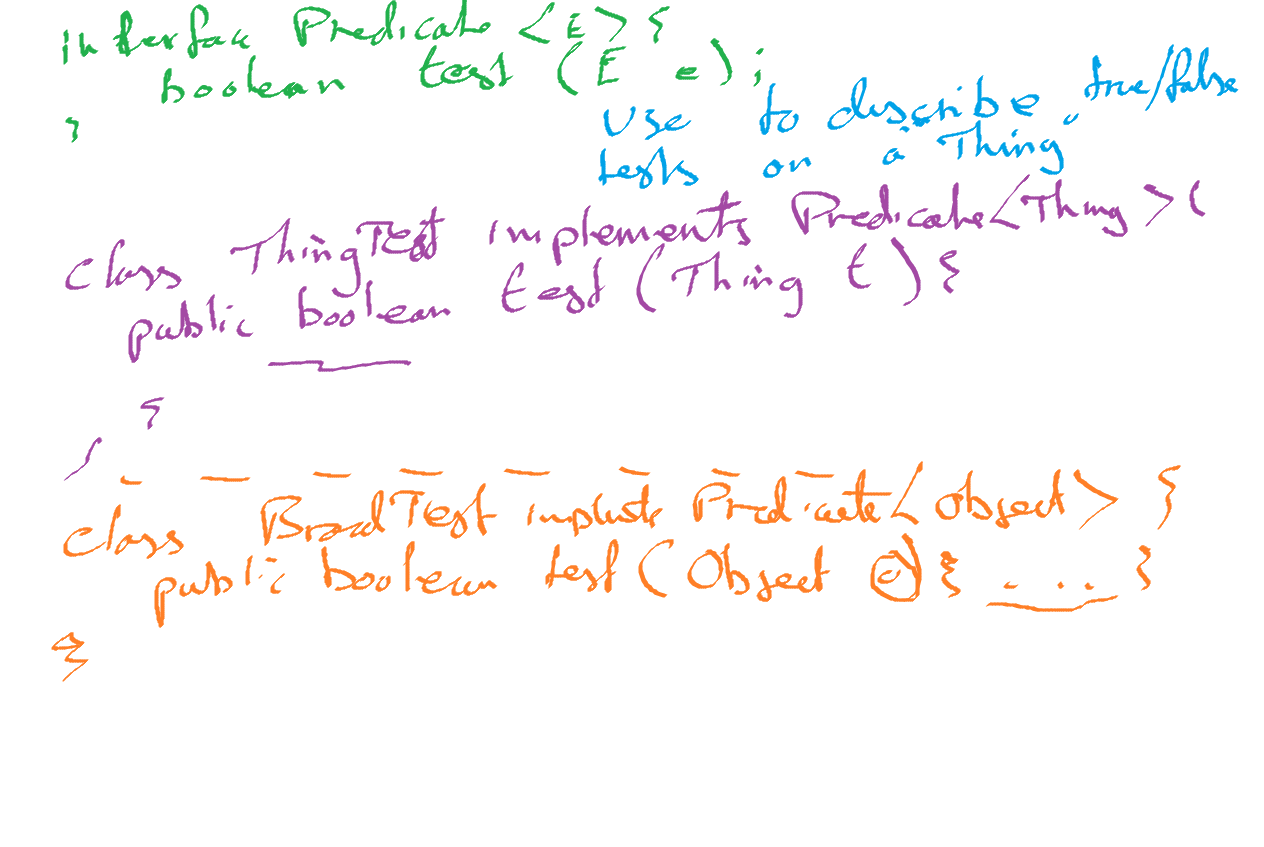 interface Predicate <E> {
boolean test (E e);
}
Use to describe true/false
tests on a "Thing"
class ThingTest implements Predicate<Thing>{
public boolean test (Thing t) {
}
}
class BroadTest implements Predicate<Object> {
public boolean test (Object o) { ... }
}